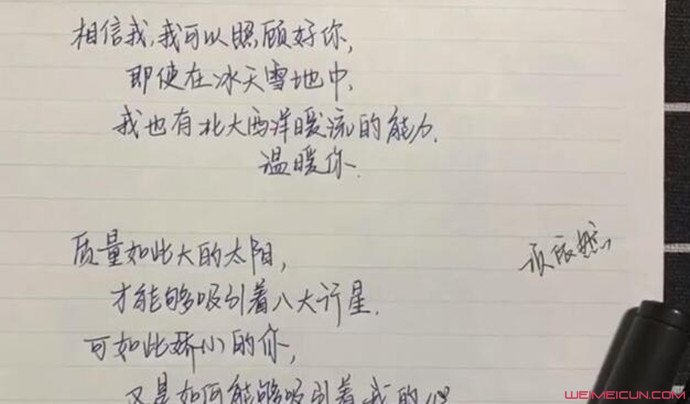 相信我,我可以照顾好你,
即使在冰天雪地中,
我也有北大西洋暖流的能力,
温暖你.
质量如此大的太阳,
才能够吸引着八大行星.
可如此娇小的你,
又是如何能够吸引着我的
WEIMEICUN.COM